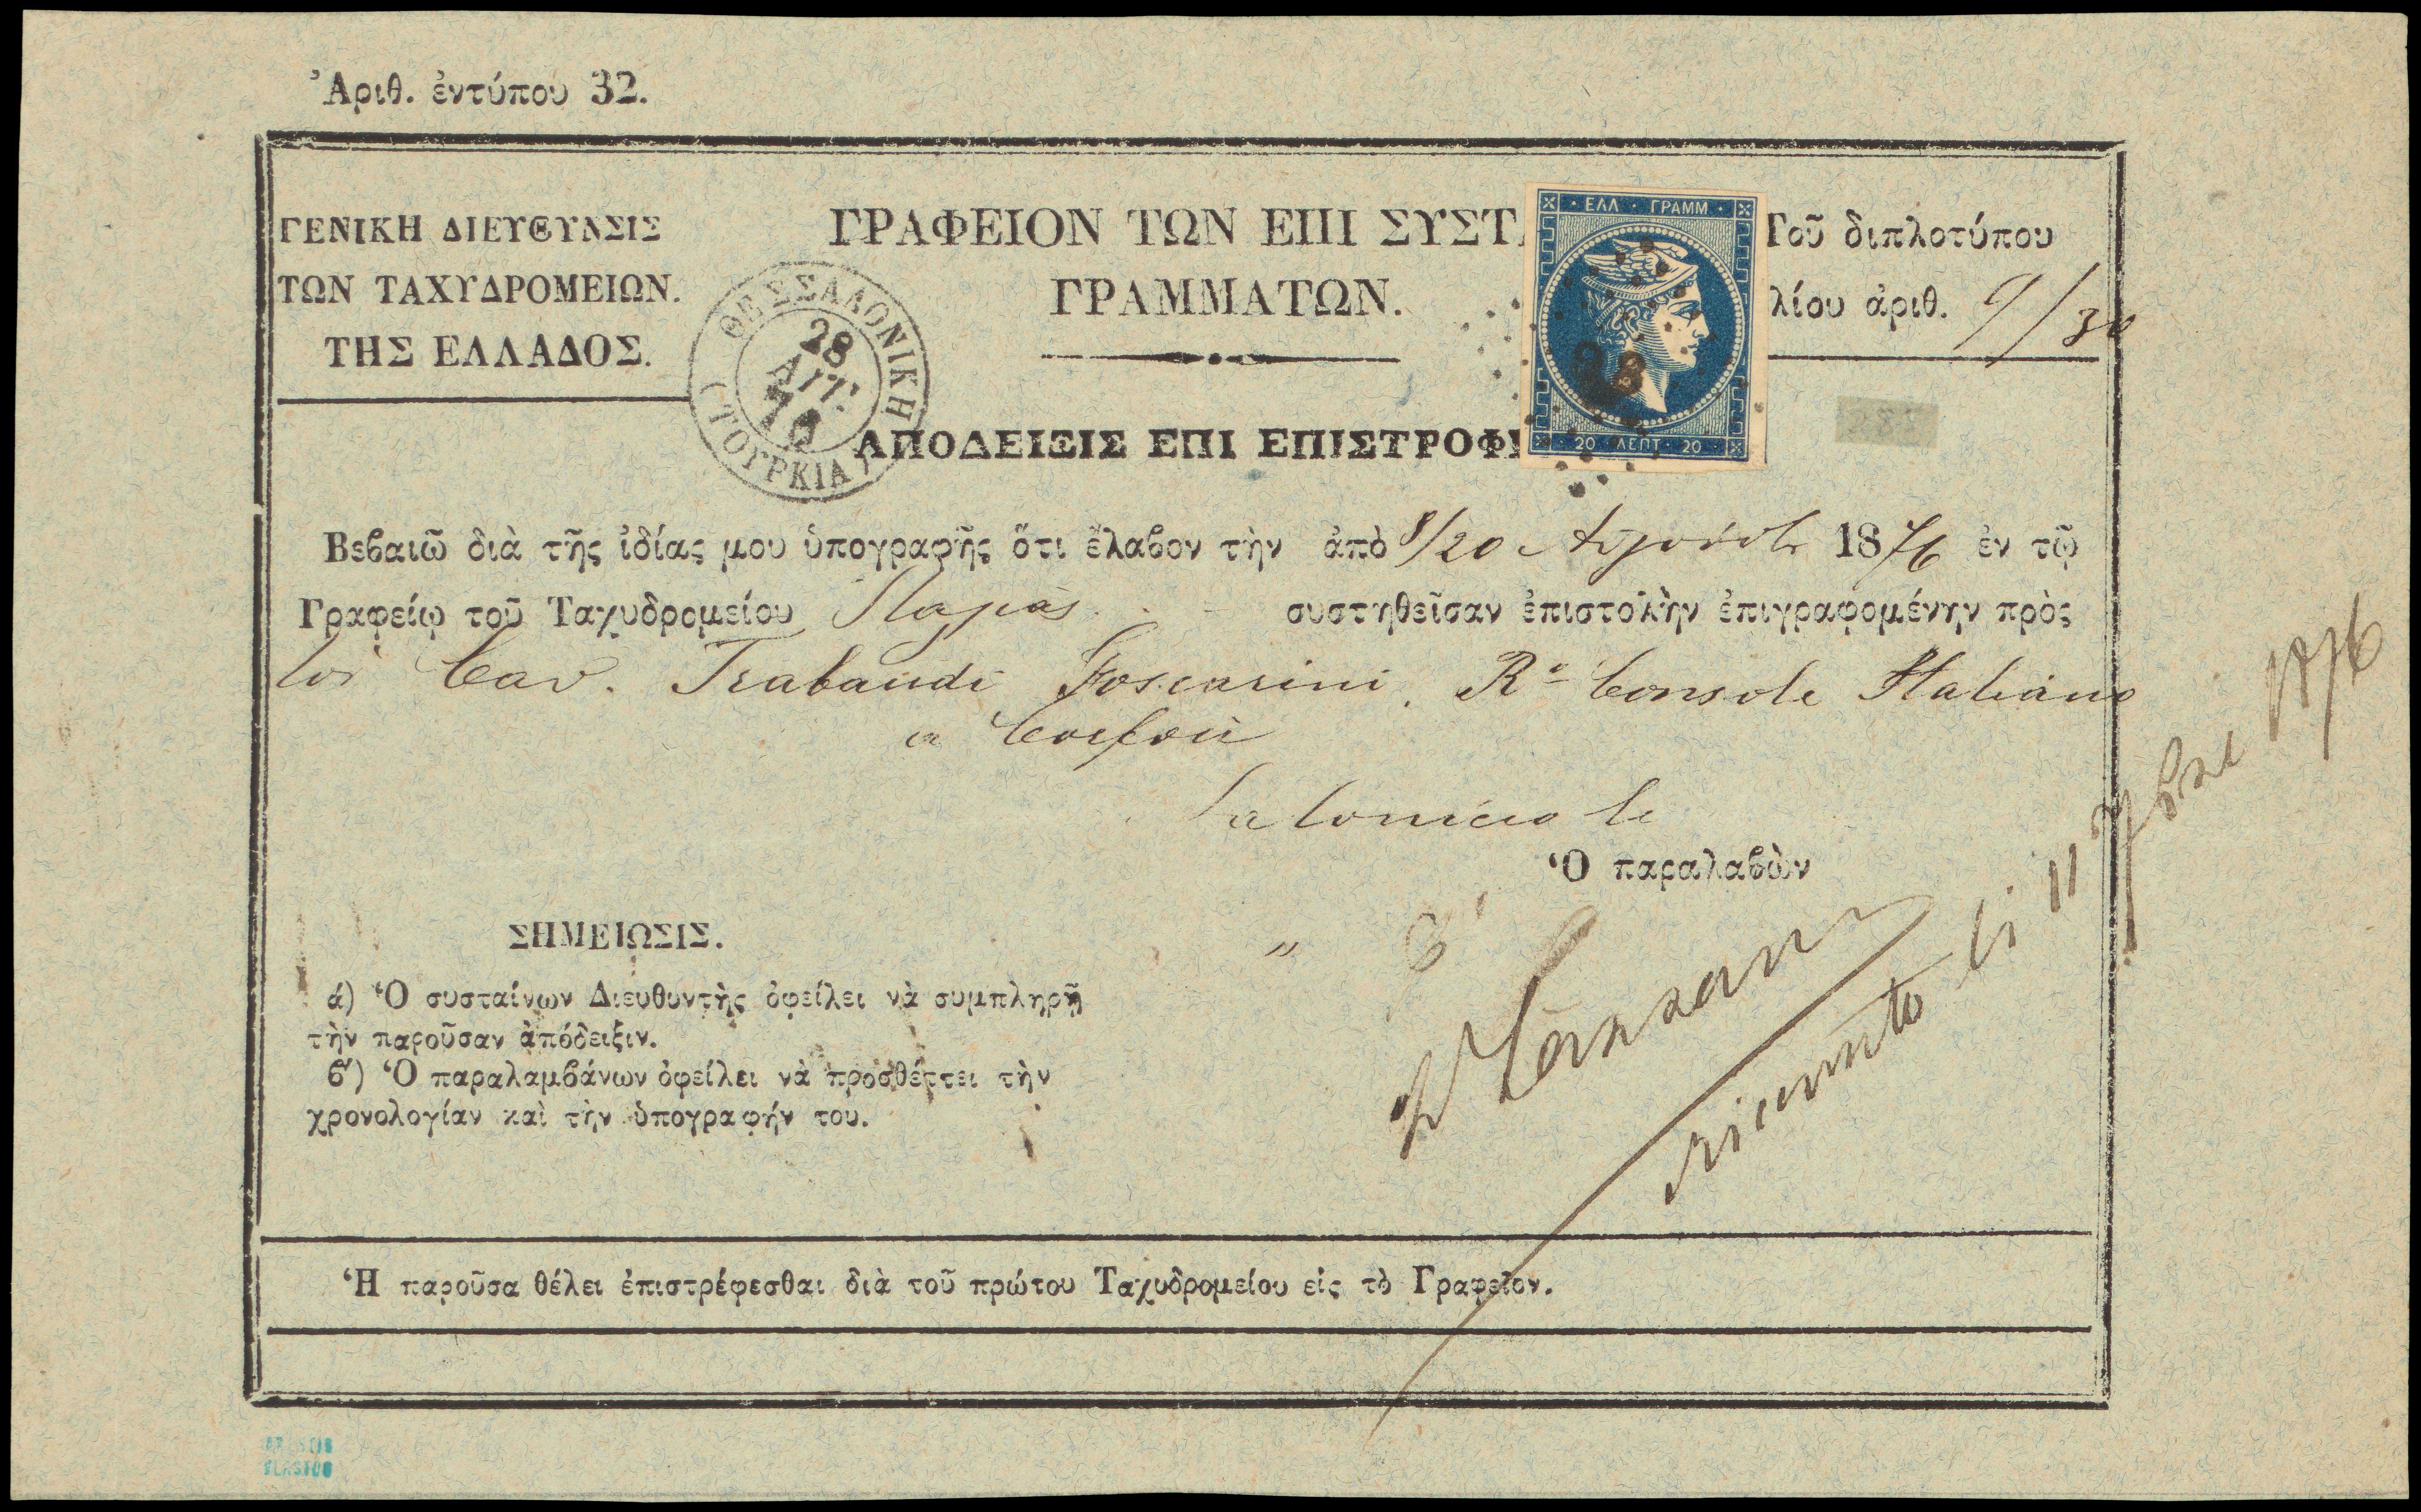 Ἀριθ. ἐντύπου 32.
ΓΕΝΙΚΗ ΔΙΕΥΘΥΝΣΙΣ
ΤΩΝ ΤΑΧΥΔΡΟΜΕΙΩΝ.
ΤΗΣ ΕΛΛΑΔΟΣ.
ΓΡΑΦΕΙΟΝ ΤΩΝ ΕΠΙ ΣΥΣΤ
ΓΡΑΜΜΑΤΩΝ.
Τοῦ διπλοτύπου
λίου ἀριθ. 9/30
ΕΛΛ · ΓΡΑΜΜ
20 ΛΕΠΤ 20
ΘΕΣΣΑΛΟΝΙΚΗ
28
ΑΥΓ.
76
(ΤΟΥΡΚΙΑ)
ΑΠΟΔΕΙΞΙΣ ΕΠΙ ΕΠΙΣΤΡΟΦΗ
Βεβαιῶ διὰ τῆς ἰδίας μου ὑπογραφῆς ὅτι ἔλαβον τὴν ἀπὸ 8/20 Αὐγούστου 1876 ἐν τῷ
Γραφείῳ τοῦ Ταχυδρομείου συστηθεῖσαν ἐπιστολὴν ἐπιγραφομένην πρὸς
τον Cav. Trabaudi Foscarini, Ro Console Italiano
a Corfou
Salonicco li
Ὁ παραλαβὼν
ricevuto li 11 7bre 1876
ΣΗΜΕΙΩΣΙΣ.
ά) Ὁ συσταίνων Διευθυντὴς ὀφείλει νὰ συμπληρῇ
τὴν παροῦσαν ἀπόδειξιν.
β') Ὁ παραλαμβάνων ὀφείλει νὰ προσθέττει τὴν
χρονολογίαν καὶ τὴν ὑπογραφήν του.
Ἡ παροῦσα θέλει ἐπιστρέφεσθαι διὰ τοῦ πρώτου Ταχυδρομείου εἰς τὸ Γραφεῖον.